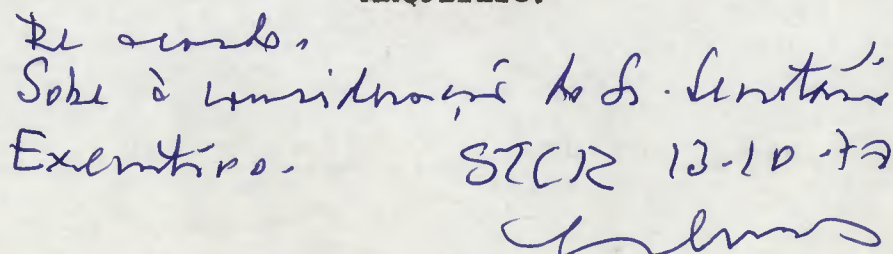 De acordo.
Sobe à consideração do Sr. Secretário
Executivo. STCR 13-10-77